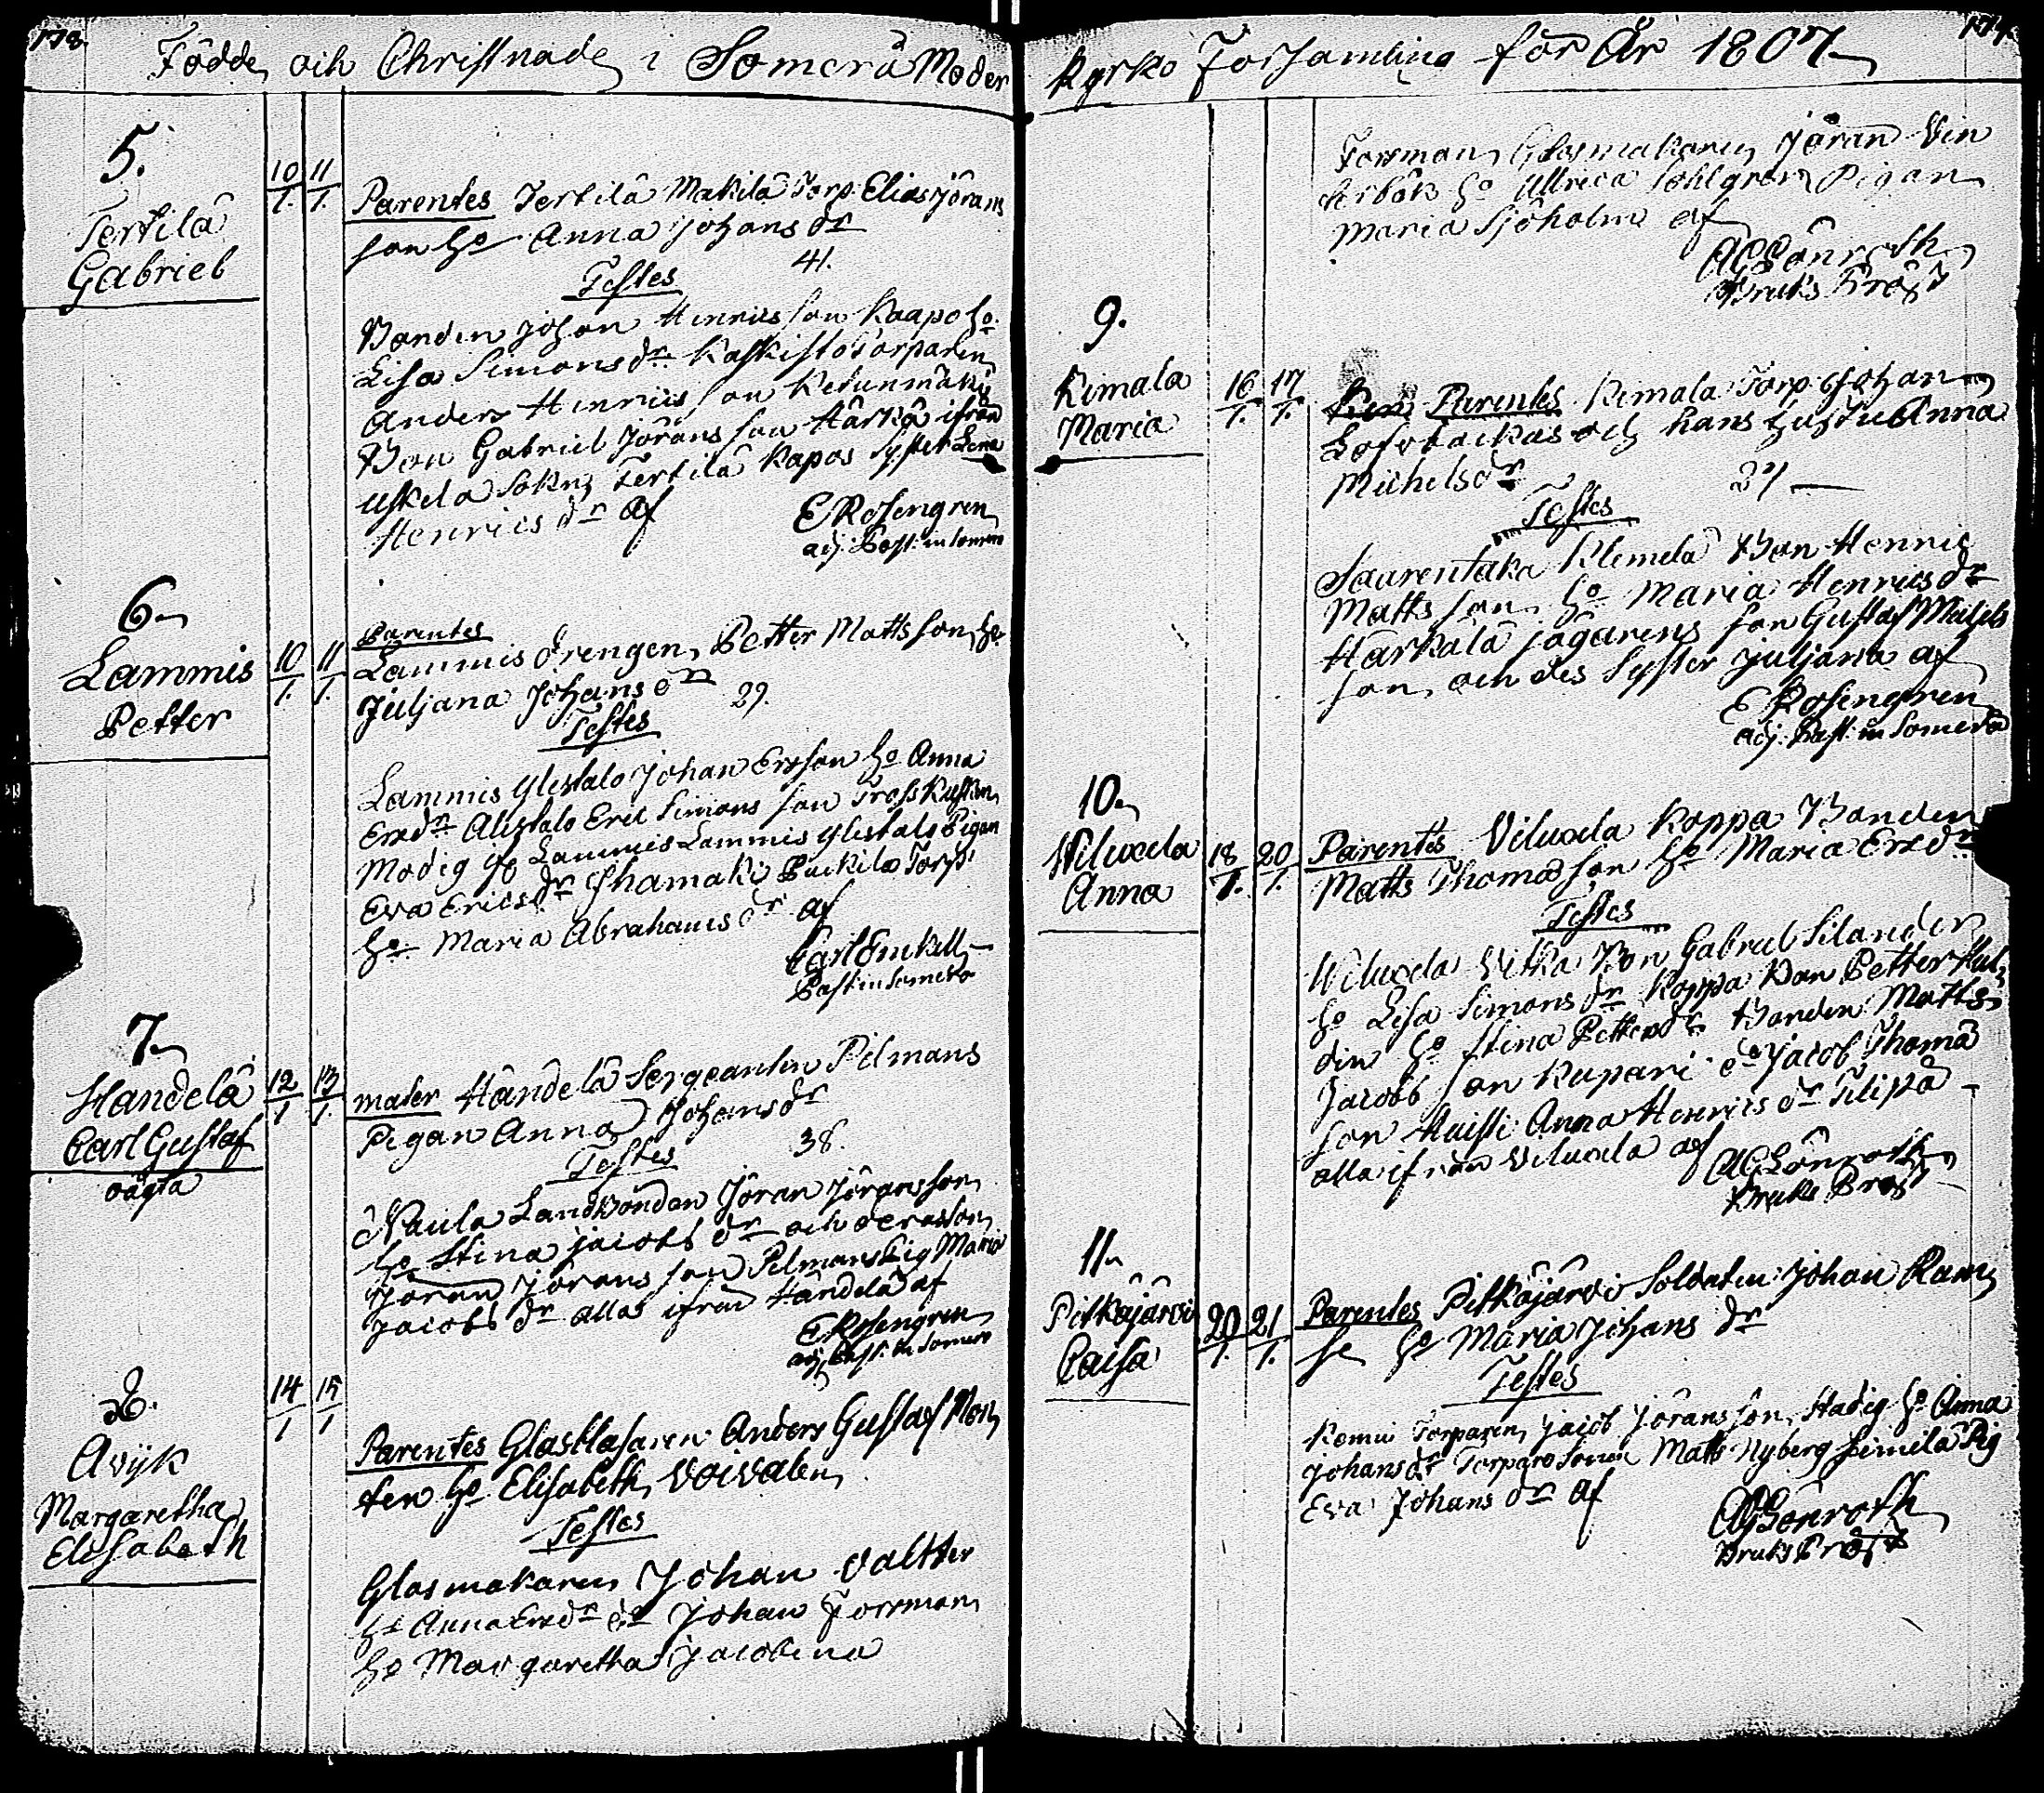 178.
Födde och Christnade i Somerå Moder
5.
Tertilä
Gabriel
10/1. 11/1.
Parentes Tertilä Makilä Torp: Elias Jörans
son Ho Anna Johans dr
41.
Testes
Bonden Johan Henrics son Kaapo Ho
Lisa Simons dr Kaskisto Torparen
Anders Henrics son Kedunmäki
Bon Gabriel Jörans son Härkä ifrån
Uskela Sokn, Tertilä Kapos Syster Lena
Henrics dr af
E Rosengren
adj: Past: in Somero
6
Lammis
Petter
10/1. 11/1.
Parentes
Lammis Drengen Petter Matts son, Ho
Juljana Johans dr
29.
Testes
Lammis Ylistalo Johan Ersson Ho Anna
Ersdr Alistalo Eric Simons son Tross Kusken
Modig ifr Lammis Lammis Ylistalo Pigan
Eva Erics dr Ihamäki Puckila Torp:
Ho Maria Abrahams dr af
Carl Enckell
Past in Somero
7
Handelä
Carl Gustaf
oägta
12/1 13/1.
mater Händelä Sergeanten Pilmans
Pigan Anna Johans dr
38.
Testes
Naula Landbonden Jöran Jörans son
Ho Stina Jacobs dr och deras son
Jöran Jörans son Pilmans Pig Maria
Jacobs dr allas ifrån Händelä af
E Rosengren
adj Past: in Somero
8.
Avijk
Margaretha
Elisabeth
14/1 15/1
Parentes Glasblasaren Anders Gustaf Mon
ten Ho Elisabeth Voivalen
Testes
Glasmakaren Johan Valtter
Ho Anna Ersdr do Johan Forsman
Ho Margaretha Jacobina
179.
Kyrko Församling för År 1807
Forsman, Glasmakaren Jöran Vin
terbäk Ho Ullrica Sohlgren Pigan
Maria Sjöholm af
AG Lönroth
Bruks Präst
9.
Kimala
Maria
16/1. 17/1.
Parentes Kimala Torp: Johan
Löfvbackas och hans Hustru Anna
Michels dr
27
Testes
Saarentaka Klemelä Bon Henric
Matts son Ho Maria Henrics dr
Härkälä Jägarens son Gustaf Michels
son och des Syster Juljana af
E Rosengren
adj: Past: in Somero
10
Viluxela
Anna
18/1. 20/1.
Parentes Viluxela Koppa Bonden
Matts Thomas son Ho Maria Ersdr
Testes
Viluxela Vitka Bon Gabriel Silander
Ho Lisa Simons dr Koppa Bon Petter Hul
din Ho Stina Petters dr Bonden Matts
Jacobs son Kupari do Jacob Thoma
son Huisti Anna Henrics dr Filipä
alla ifrån Viluxela af
AG Lönroth
Bruks Präst
11
Pitkäjärvi
Caisa
20/1. 21/1.
Parentes Pitkäjärvi Soldaten Johan Ram
se Ho Maria Johans dr
Testes
Torparen Jacob Jörans son Hadig Ho Anna
Johans dr Torpare Sonen Matts Nyberg Pig
Eva Johans dr af
AG Lönroth
Bruks Präst